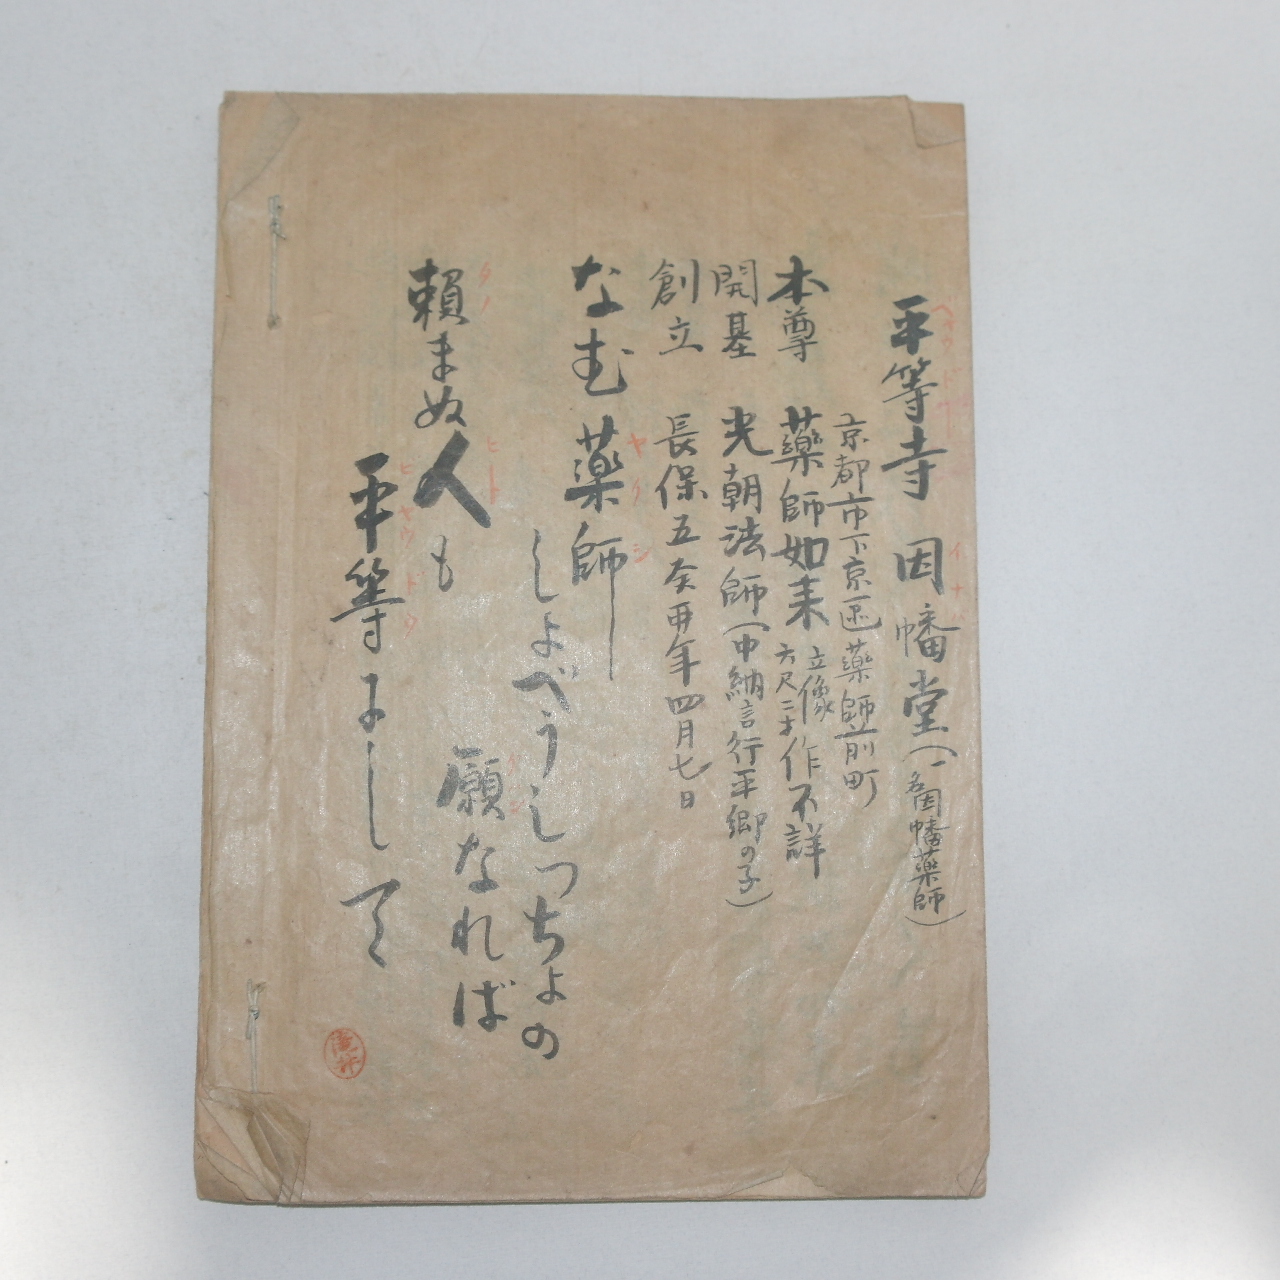 平等寺 因幡堂(一名因幡薬師)
京都市下京区薬師前町
本尊 薬師如来 立像 六尺二寸 作不詳
開基 光朝法師(中納言行平郷の子)
創立 長保五癸卯年四月七日
なむ薬師
しよべうしつぢよの
願なれば
頼まぬ人も
平等にして